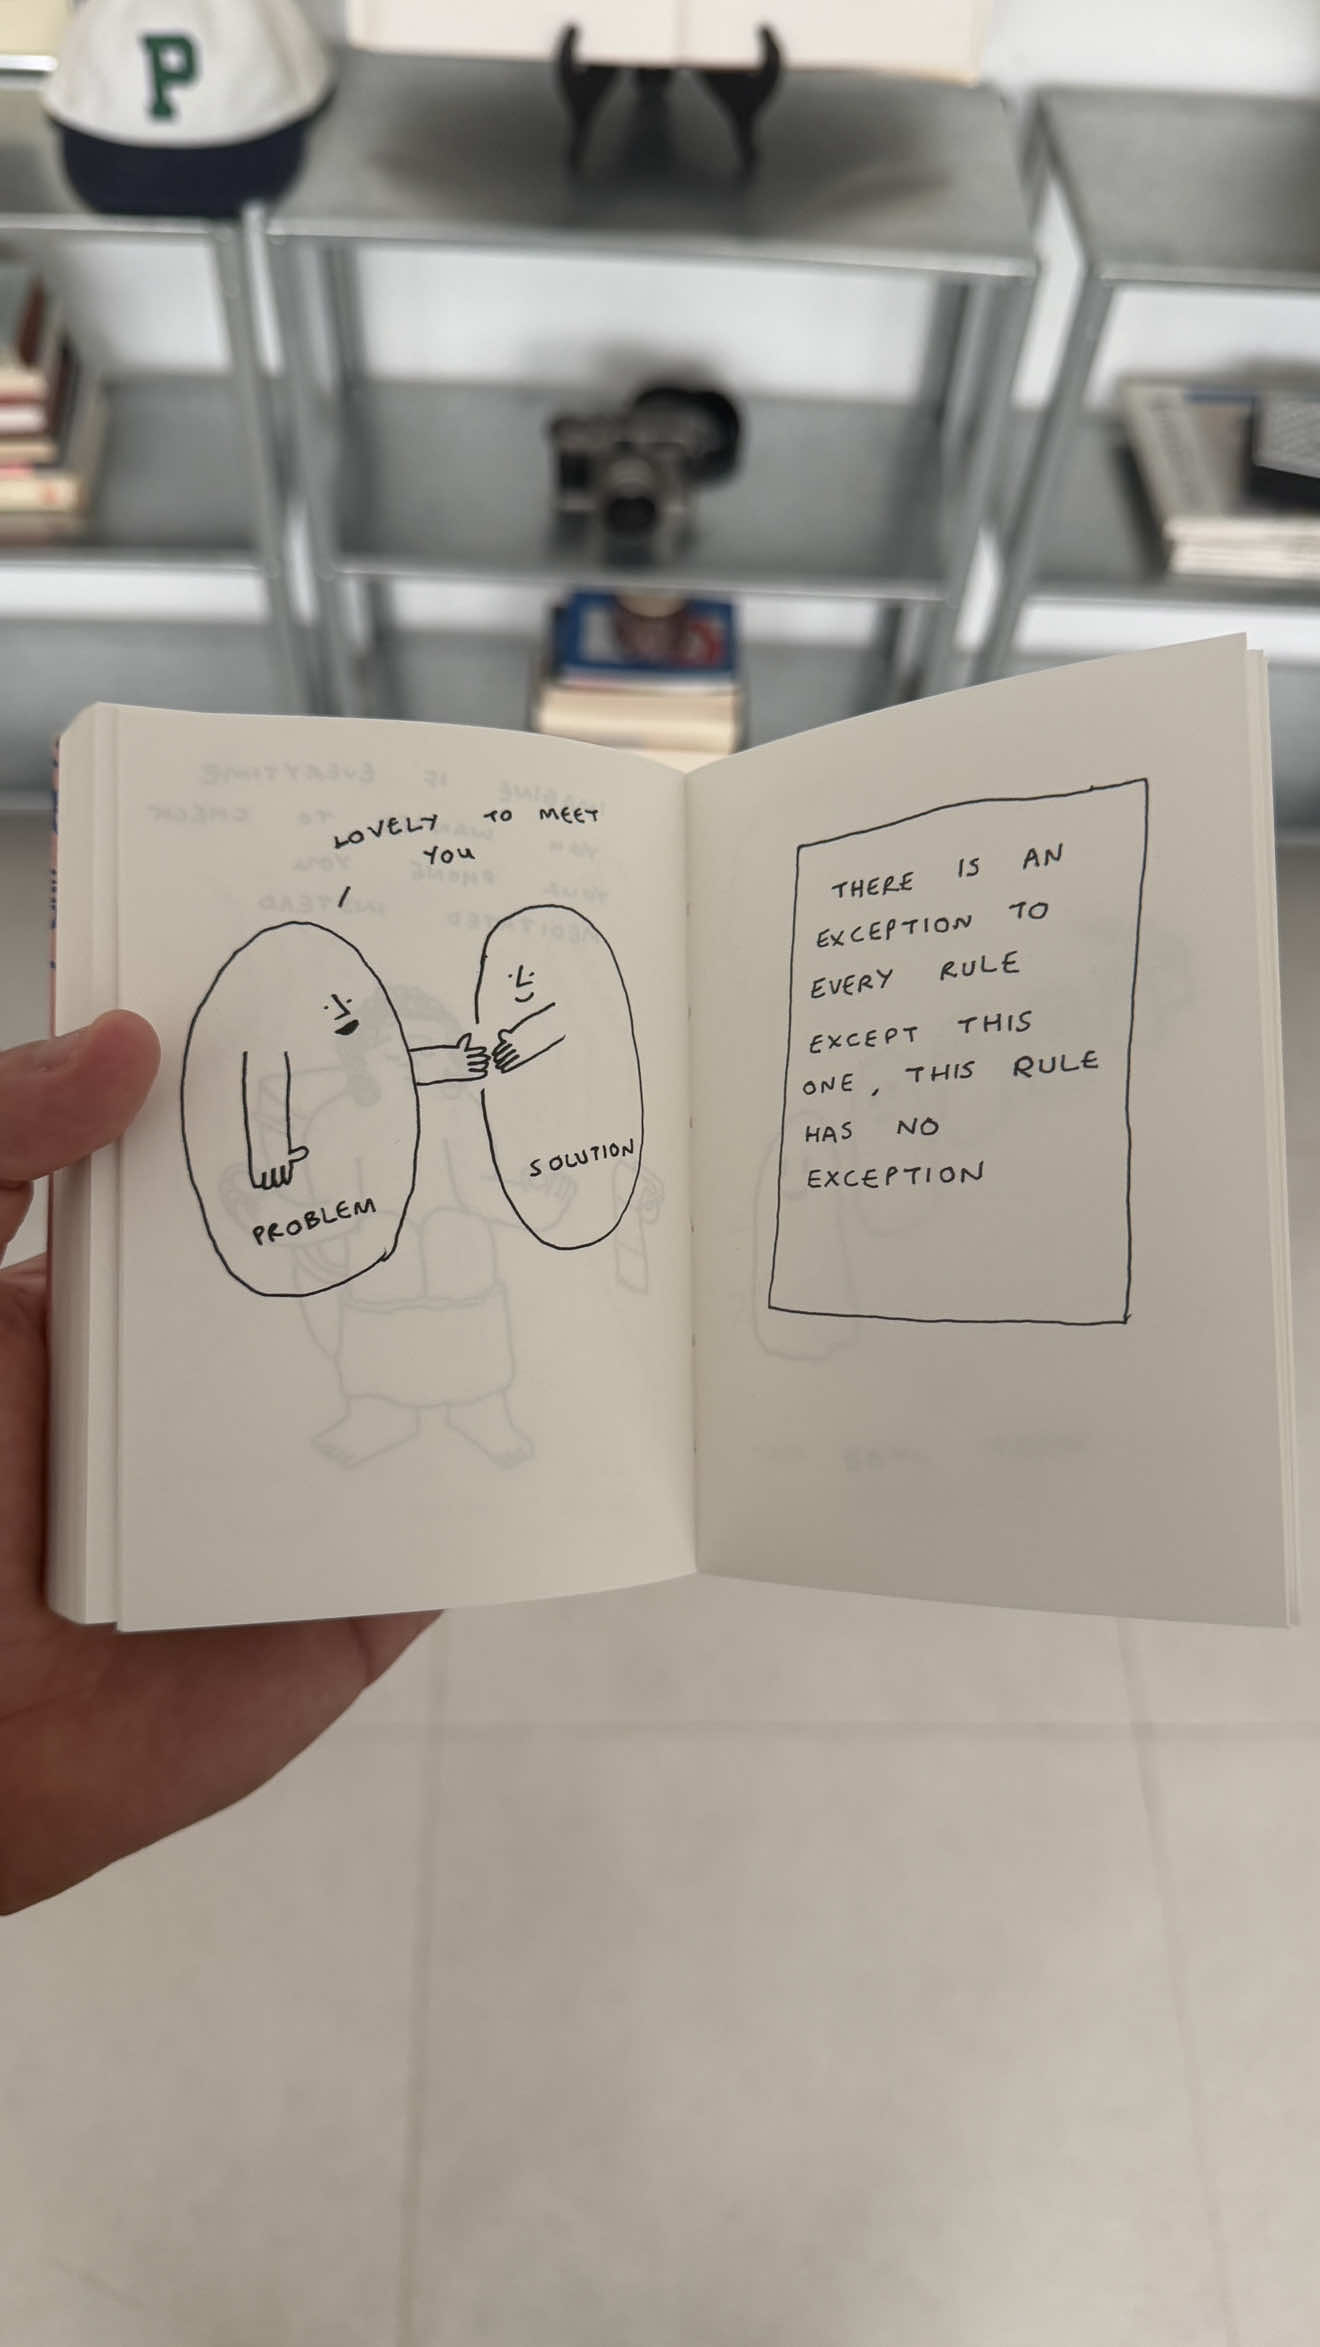 P
LOVELY TO MEET
YOU
PROBLEM
SOLUTION
THERE IS AN
EXCEPTION TO
EVERY RULE
EXCEPT THIS
ONE, THIS RULE
HAS NO
EXCEPTION